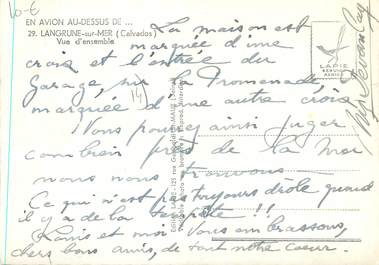 10-E
EN AVION AU-DESSUS DE ...
29. LANGRUNE-sur-MER (Calvados)
Vue d'ensemble
LAPIE
SERVICE
AÉRIEN
La maison est
marquée d'une
croix et l'entrée du
Garage, sur la Promenade
marquée d'une autre croix
14
Vous pouvez ainsi juger
combien près de la mer
nous nous trouvons
Ce qui n'est pas toujours drôle quand
il y a de la tempête !!
et moi vous embrassons,
chers bons amis, de tout notre coeur.